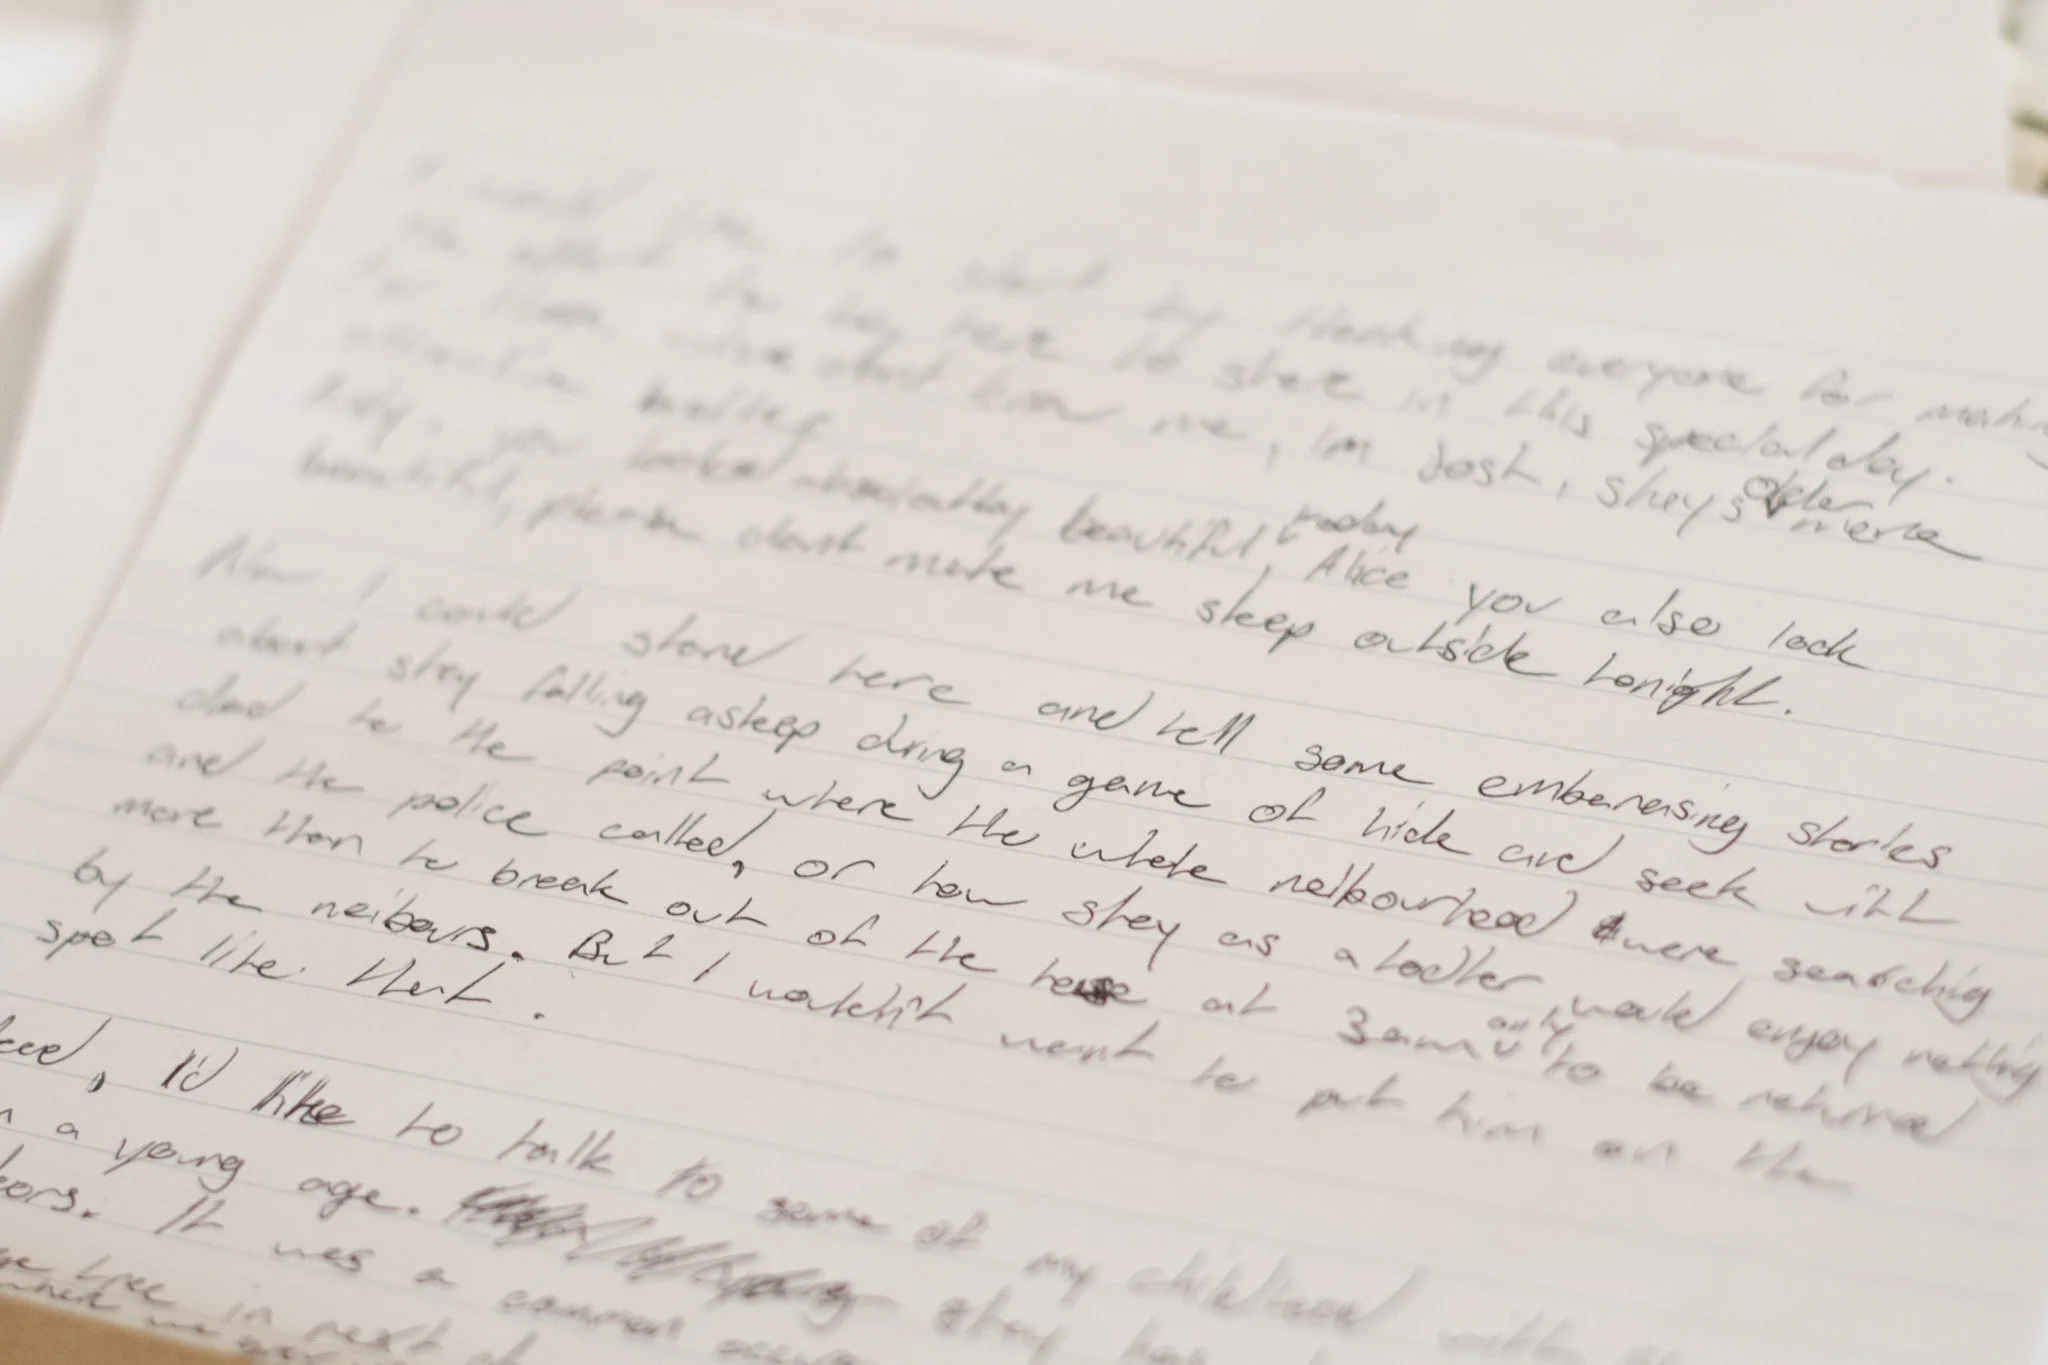 I would like to start by thanking everyone for making
the effort to be here to share in this special day.
For those who dont know me, im Josh, shey's older more
attractive brother
Kirby, you looks absolutley beautiful today, Alice you also look
beautiful, please dont make me sleep outside tonight.
Now I could stand here and tell some embarrasing stories
about shey falling asleep during a game of hide and seek with
dad to the point where the whole neibourhood were searching
and the police called, or how shey as a todler would enjoy nothing
more than to break out of the house at 3am only to be returned
by the neibours. But I wouldn't want to put him on the
spot like that.
I'd like to talk to some of my childhood with
a young age. shey
It was a common
tree in next